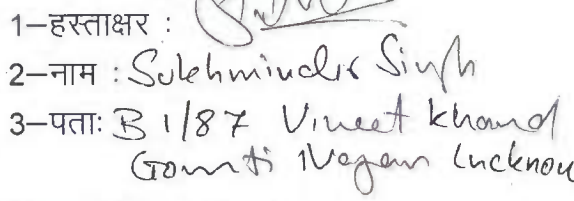 1–हस्ताक्षर :
2–नाम : Sukhminder Singh
3–पताः B 1/87 Vineet Khand
Gomti Nagar Lucknow